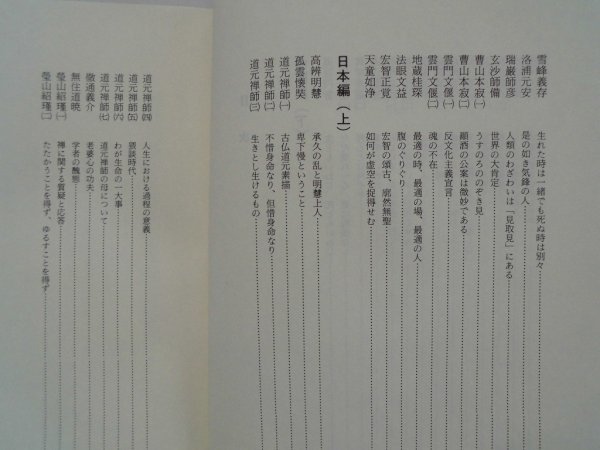 雪峰義存 生れた時は一緒でも死ぬ時は別々
洛浦元安 是の如き気鋒の人
瑞巌師彦 人類のわざわいは「見取見」にある
玄沙師備 世界の大肯定
曹山本寂㈠ うすのろののぞき見
曹山本寂㈡ 顚酒の公案は微妙である
雲門文偃㈠ 反文化主義宣言
雲門文偃㈡ 魂の不在
地蔵桂琛 最適の時、最適の場、最適の人
法眼文益 腹のぐりぐり
宏智正覚 宏智の頌古、廓然無聖
天童如浄 如何が虚空を捉得せむ
日本編(上)
高辨明慧 承久の乱と明慧上人
孤雲懐奘 卑下慢ということ
道元禅師㈠ 古仏道元素描
道元禅師㈡ 不惜身命なり、但惜身命なり
道元禅師㈢ 生きとし生けるもの
道元禅師㈣ 人生における過程の意義
道元禅師㈤ 猥談時代
道元禅師㈥ わが生命の一大事
道元禅師㈦ 道元禅師の母について
徹通義介 老婆心の功夫
無住道暁 学者の醜態
瑩山紹瑾㈠ 禅に関する質疑と応答
瑩山紹瑾㈡ たたかうことを得ず、ゆるすことを得ず